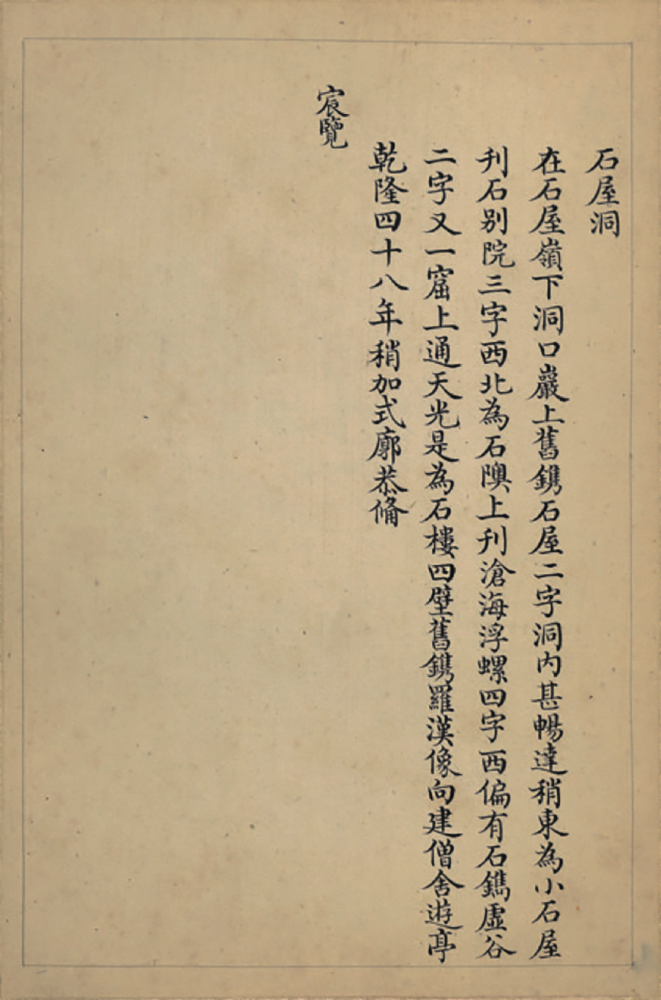 石屋洞
在石屋嶺下洞口巖上舊鐫石屋二字洞內甚暢達稍東為小石屋
刋石别院三字西北為石隩上刋滄海浮螺四字西偏有石鐫虛谷
二字又一窟上通天光是為石樓四壁舊鐫羅漢像向建僧舍遊亭
乾隆四十八年稍加式廓恭備
宸覽